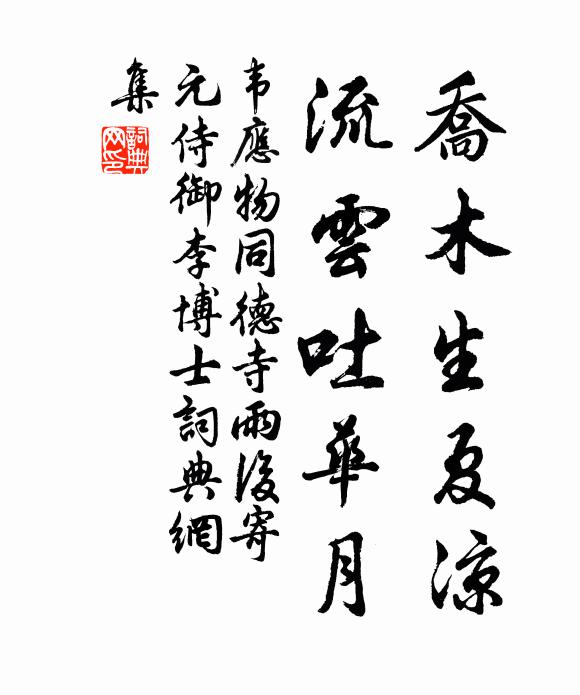 喬木生夏涼
流雲吐華月
韦應物同德寺雨後寄
元侍御李博士詞典網
集
詞典网印